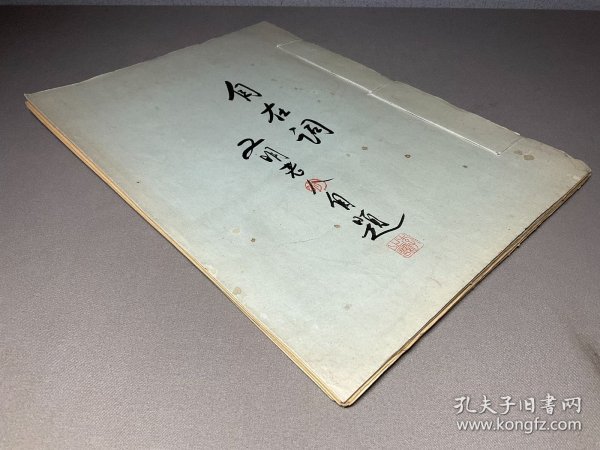 自在词
又明老人自题
孔夫子旧书网
www.kongfz.com